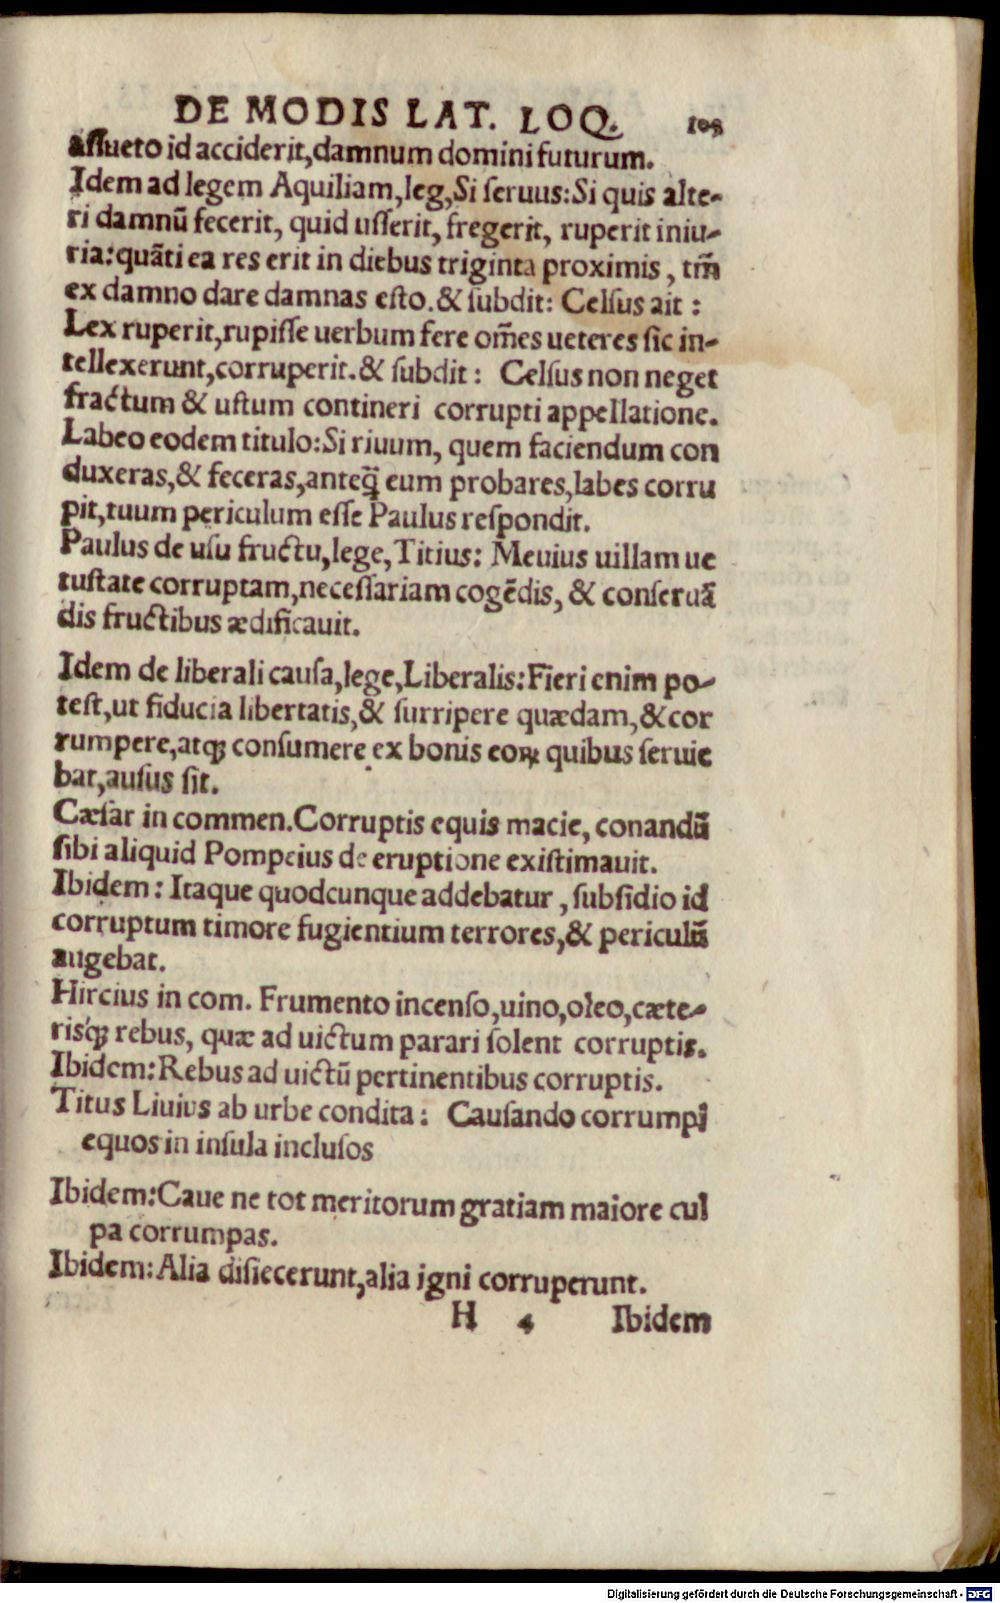 DE MODIS LAT. LOQ.
aſſueto id acciderit,damnum domini futurum.
Idem ad legem Aquiliam,leg,Si ſeruus:Si quis alte-
ri damnũ fecerit, quid uſſerit, fregerit, ruperit iniu-
ria:quãti ea res erit in diebus triginta proximis, tm̃
ex damno dare damnas eſto.& ſubdit: Celſus ait:
Lex ruperit,rupiſſe uerbum fere om̃es ueteres ſic in-
tellexerunt,corruperit.& ſubdit: Celſus non neget
fractum & uſtum contineri corrupti appellatione.
Labeo eodem titulo:Si riuum, quem faciendum con
duxeras,& feceras,anteq̃ eum probares,labes corru
pit,tuum periculum eſſe Paulus reſpondit.
Paulus de uſu fructu,lege,Titius: Meuius uillam ue
tuſtate corruptam,neceſſariam cogẽdis, & conſeruã
dis fructibus ædificauit.
Idem de liberali cauſa,lege,Liberalis:Fieri enim po-
teſt,ut fiducia libertatis,& ſurripere quædam,&cor
rumpere,atq; conſumere ex bonis eoꝝ quibus ſeruie
bat,auſus ſit.
Cæſar in commen.Corruptis equis macie, conandũ
ſibi aliquid Pompeius de eruptione exiſtimauit.
Ibidem: Itaque quodcunque addebatur, ſubſidio id
corruptum timore fugientium terrores,& periculũ
augebat.
Hircius in com. Frumento incenſo,uino,oleo,cæte-
risq; rebus, quæ ad uictum parari ſolent corruptis.
Ibidem:Rebus ad uictũ pertinentibus corruptis.
Titus Liuius ab urbe condita: Cauſando corrumpi
equos in inſula incluſos
Ibidem:Caue ne tot meritorum gratiam maiore cul
pa corrumpas.
Ibidem:Alia diſiecerunt,alia igni corruperunt.
H 4 Ibidem
Digitalisierung gefördert durch die Deutsche Forschungsgemeinschaft - DFG